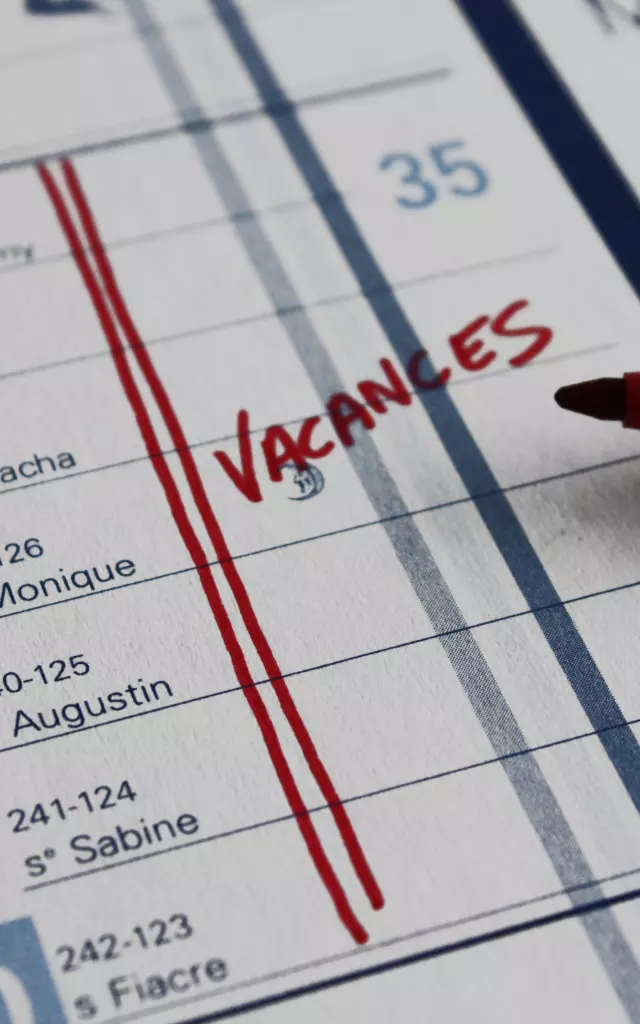 35
VACANCES
acha
126
Monique
40-125
Augustin
241-124
sᵉ Sabine
242-123
s Fiacre